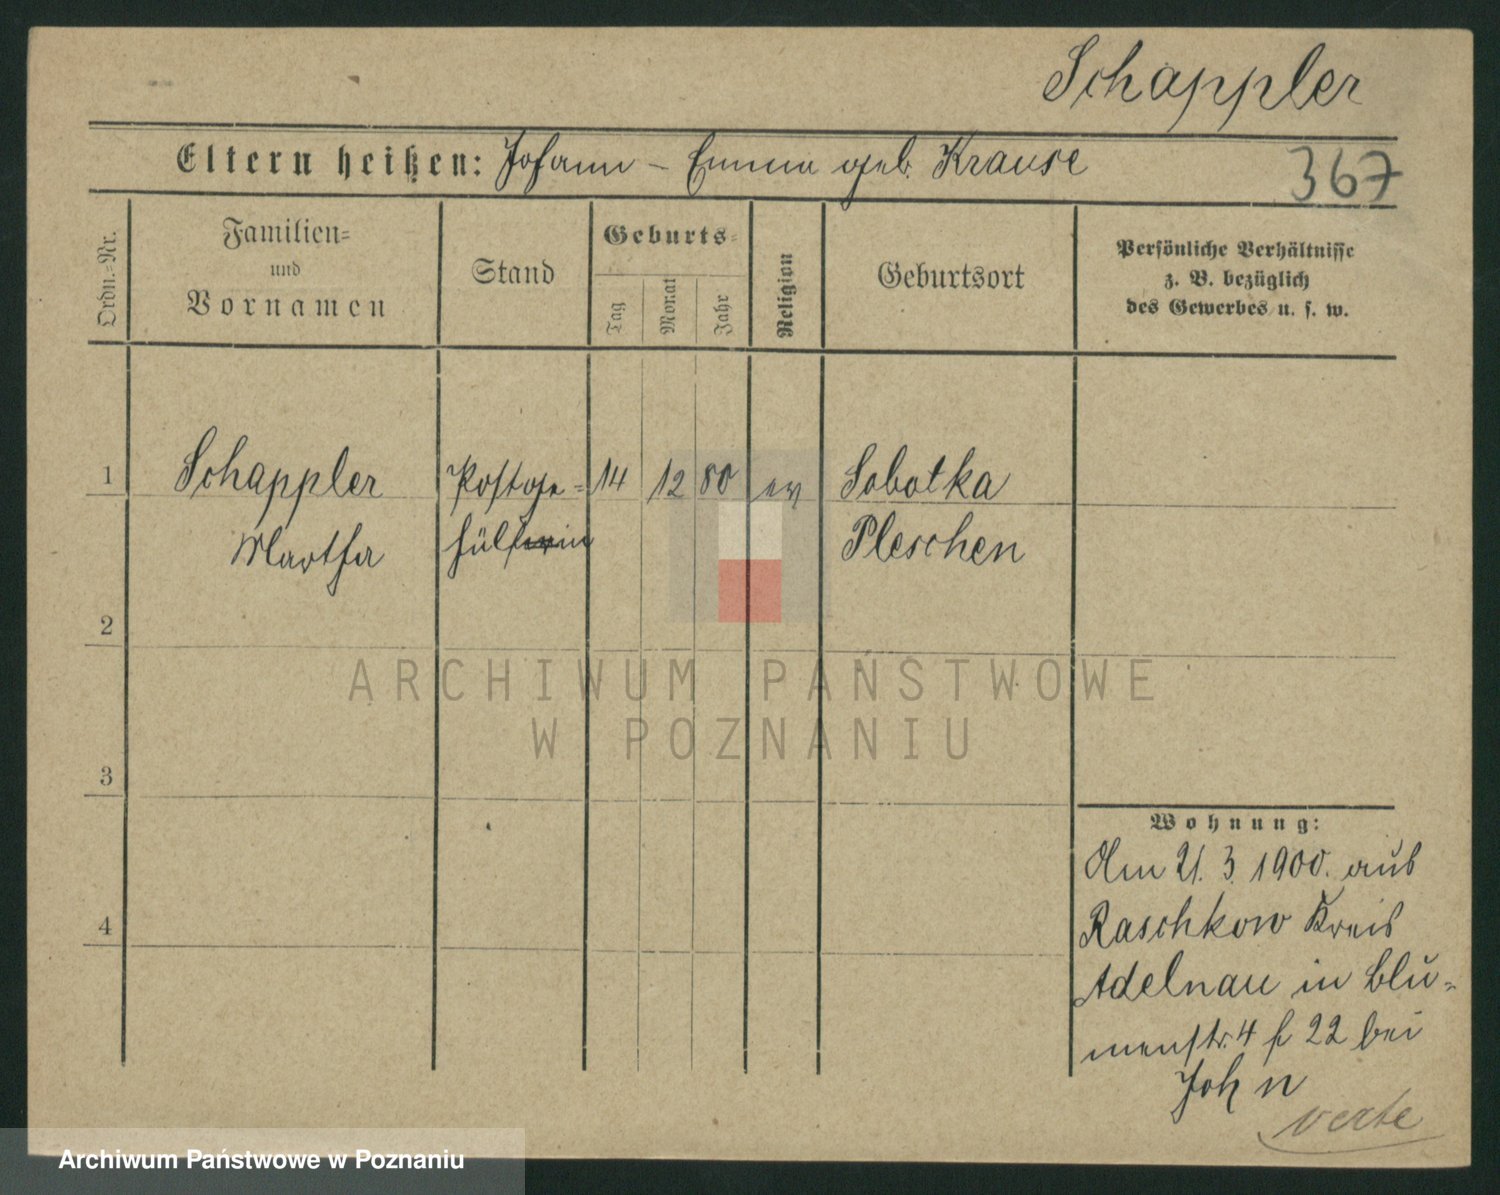 Schappler
Eltern heißen: Johann – Emma geb. Krause
367
Ordn.-Nr.
Familien-
und
Vornamen
Stand
Geburts-
Tag
Monat
Jahr
Religion
Geburtsort
Persönliche Verhältnisse
z. B. bezüglich
des Gewerbes u. s. w.
1 Schappler Postge- 14 12 80 ev Sobotka
Martha hülfin Pleschen
2
3
4
Wohnung:
Am 21. 3. 1900. aus
Raschkow Kreis
Adelnau in Blu-
menstr. 4 22 bei
John
verte
ARCHIWUM PAŃSTWOWE
W POZNANIU
Archiwum Państwowe w Poznaniu